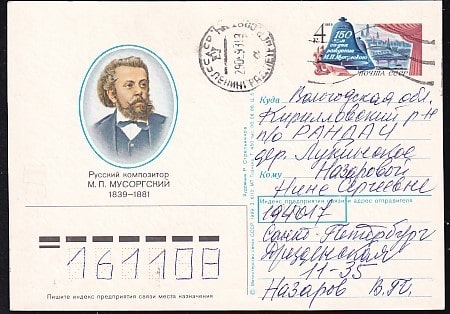 Русский композитор
М. П. МУСОРГСКИЙ
1839–1881
161108
Пишите индекс предприятия связи места назначения
4
150
лет
со дня
рождения
М.П.Мусоргского
ПОЧТА СССР
Куда Вологодская обл.
Кирилловский р-н
п/о РАНДАЧ
дер. Лукинское
Кому Назаровой
Нине Сергеевне
Индекс предприятия связи и адрес отправителя
194017
Санкт-Петербург
Дрезденская
11-35
Назаров В.П.